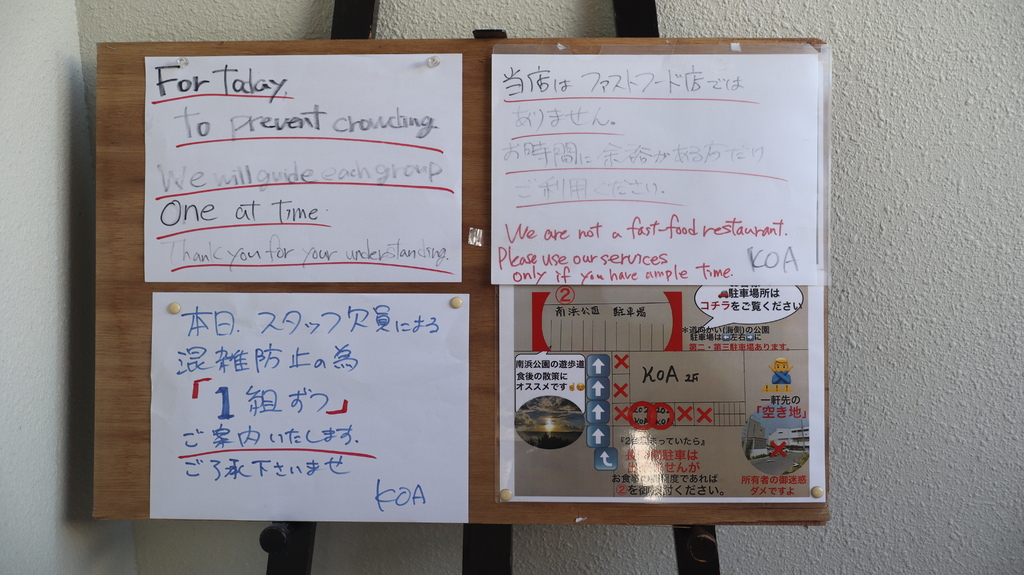 For today.
to prevent crowding.
We will guide each group
One at Time.
Thank you for your understanding.
当店は ファストフード店では
ありません。
お時間に余裕がある方だけ
ご利用ください.
We are not a fast-food restaurant.
Please use our services
only if you have ample time.
KOA
本日. スタッフ欠員による
混雑防止の為
「1組ずつ」
ご案内いたします.
ご了承下さいませ
KOA
駐車場所は
コチラをご覧ください
②
南浜公園 駐車場
＊道向かい(海側)の公園
駐車場は⬅左右➡に
第二・第三駐車場あります。
南浜公園の遊歩道
食後の散策に
オススメです
KOA
一軒先の
「空き地」
所有者の御迷惑
ダメですよ
お食事
②を
ください。